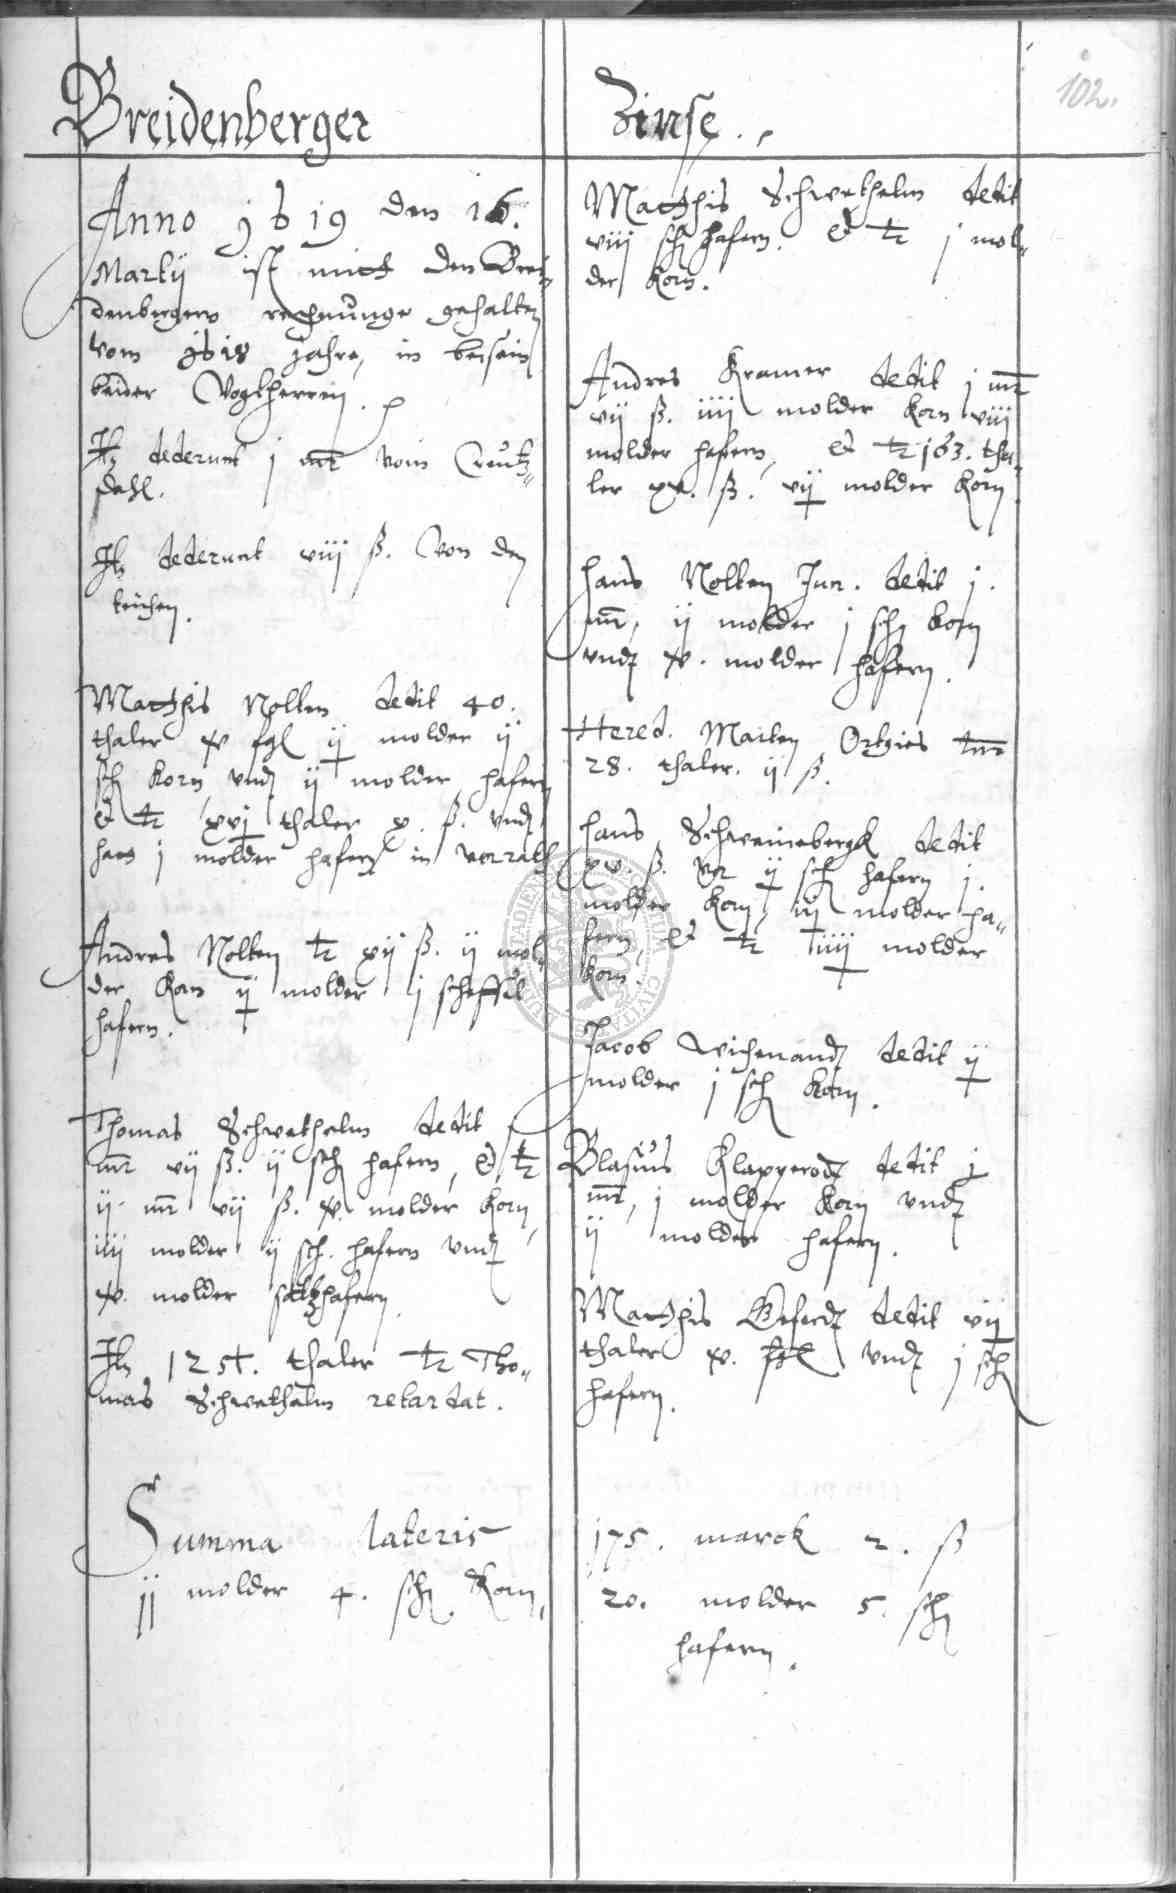 102.
Breidenberger Zinse.
Anno 1619 den 16.
Martij ist mitt den Brei-
denbergern rechnunge gehalten
vom 1618 jahre, in beisein
beider Vogtherren.
It dederunt j mr vom Creutz-
stahl.
It dederunt viij ß. Von den
teichen.
Matthis Nolten dedit 40.
thaler xv fgl ij molder ij
sch Korn vnd ij molder hafern
et tr xvj thaler x. ß. vnd
hatt j molder hafern in vorrath
Andres Nolten tr xij ß. ij mol-
der Korn ij molder j scheffel
hafern.
Thomas Schwethelm dedit j
mr vij ß. ij sch hafern, et tr
ij mr vij ß. xv. molder Korn,
iiij molder ij sch. hafern vnd
xv. molder hafern
It 125 t. thaler tr Tho-
mas Schwethelm retardat.
Summa lateris
jj molder 4. sch Korn,
Matthis Schwethelm dedit
viij sch hafern. et tr j mol-
der Korn.
Andres Kramer dedit j mr
vij ß. iiij molder Korn viij
molder hafern, et tr 163. tha-
ler xv. ß. vij molder Korn
Hans Nolten Jun. dedit j.
mr, ij molder j sch Korn
vnd xv. molder hafern.
Hered. Marten Ortgies tnr
28. thaler. ij ß.
Hans Schweinebergk dedit
xv. ß. vor ij sch hafern j.
molder Korn, iij molder ha-
fern et tr iiij molder
Korn.
Jacob Wichenandt dedit ij
molder j sch Korn.
Blasius Klapperodt dedit j
mr, j molder Korn vnd
ij molder hafern.
Matthis dedit vij
thaler xv. fgl vnd j sch
hafern.
175. marck 2. ß
20. molder 5. sch
hafern.